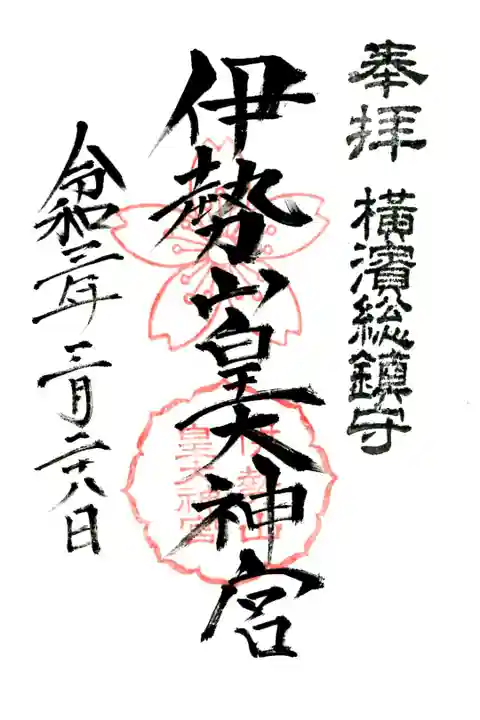 奉拝 横濱総鎮守
伊勢山皇大神宮
伊勢山
皇大神宮
令和三年三月二十八日